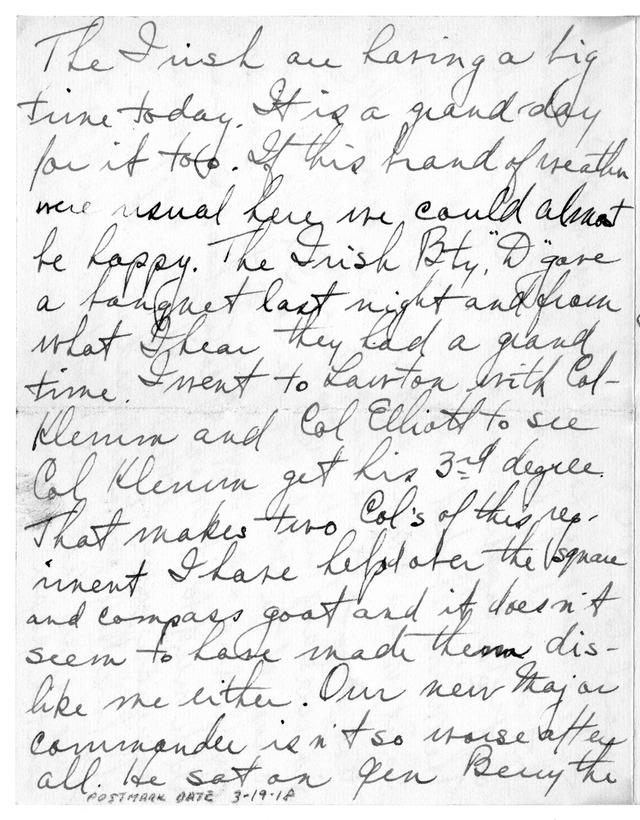 The Irish are having a big
time today. It is a grand day
for it too. If this brand of weather
were usual here we could almost
be happy. The Irish Bty, "D" gave
a banquet last night and from
what I hear they had a grand
time. I went to Lawton with Col-
Klemm and Col Elliott to see
Col Klemm get his 3rd degree.
That makes two Col's of this reg-
iment I have helped over the square
and compass goat and it doesn't
seem to have made them dis-
like me either. Our new Major
commander isn't so worse after
all. He sat on Gen Berry the
POSTMARK DATE 3-19-18